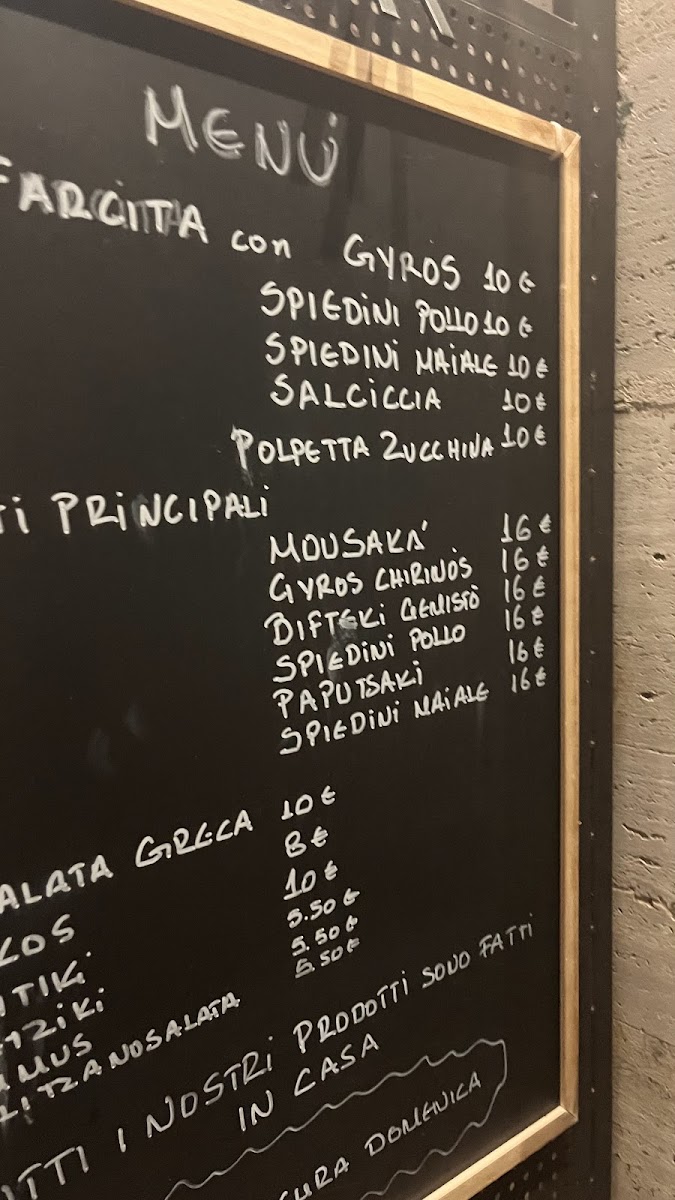 MENÙ
FARCITA con GYROS 10 €
SPIEDINI POLLO 10 €
SPIEDINI MAIALE 10 €
SALCICCIA 10 €
POLPETTA ZUCCHINA 10 €
TI PRINCIPALI
MOUSAKA' 16 €
GYROS CHIRINÒS 16 €
BIFTEKI GEMISTÒ 16 €
SPIEDINI POLLO 16 €
PAPUTSAKI 16 €
SPIEDINI MAIALE 16 €
ALATA GRECA 10 €
KOS 8 €
ITIKI 10 €
TZIKI 5.50 €
UMUS 5.50 €
LITZANOSALATA 5.50 €
UTTI I NOSTRI PRODOTTI SONO FATTI
IN CASA
SURA DOMENICA